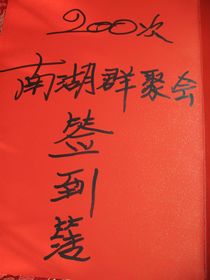 200次
南湖群聚会
签
到
簿